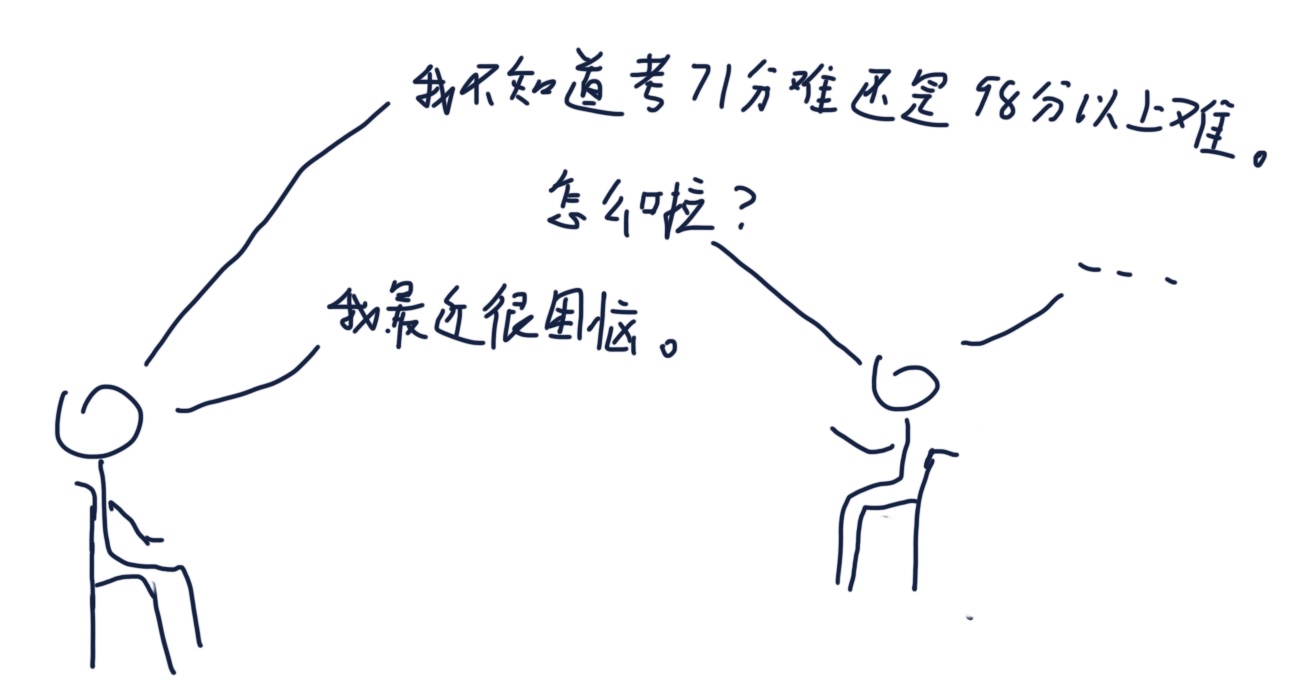 我不知道考71分难还是98分以上难。
怎么啦？
我最近很困恼。
---